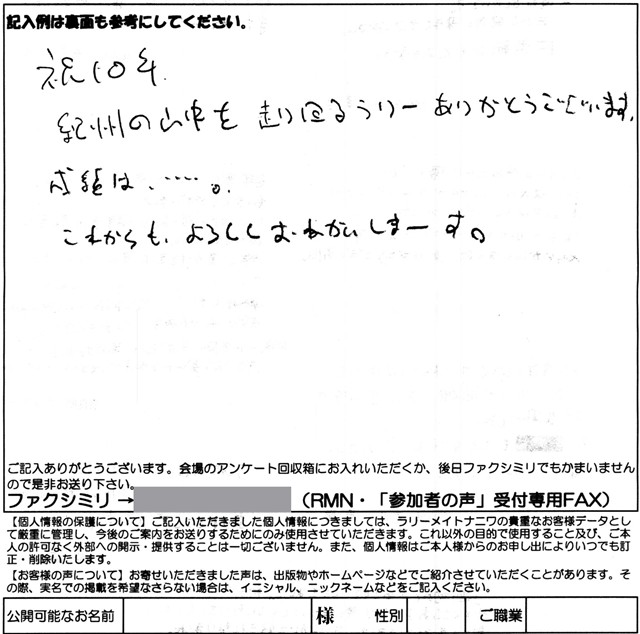 記入例は裏面も参考にしてください。
祝10年
紀州の山中を走り回るラリーありがとうございます。
成績は・・・・・。
これからも、よろしくおねがいしまーす。
ご記入ありがとうございます。会場のアンケート回収箱にお入れいただくか、後日ファクシミリでもかまいません
ので是非お送り下さい。
ファクシミリ→ （RMN・「参加者の声」受付専用FAX）
【個人情報の保護について】ご記入いただきました個人情報につきましては、ラリーメイトナニワの貴重なお客様データとし
て厳重に管理し、今後のご案内をお送りするためにのみ使用させていただきます。これ以外の目的で使用すること及び、ご本
人の許可なく外部への開示・提供することは一切ございません。また、個人情報はご本人様からのお申し出によりいつでも訂
正・削除いたします。
【お客様の声について】お寄せいただきました声は、出版物やホームページなどでご紹介させていただくことがあります。そ
の際、実名での掲載を希望なさらない場合は、イニシャル、ニックネームなどをご記入ください。
公開可能なお名前 様 性別 ご職業